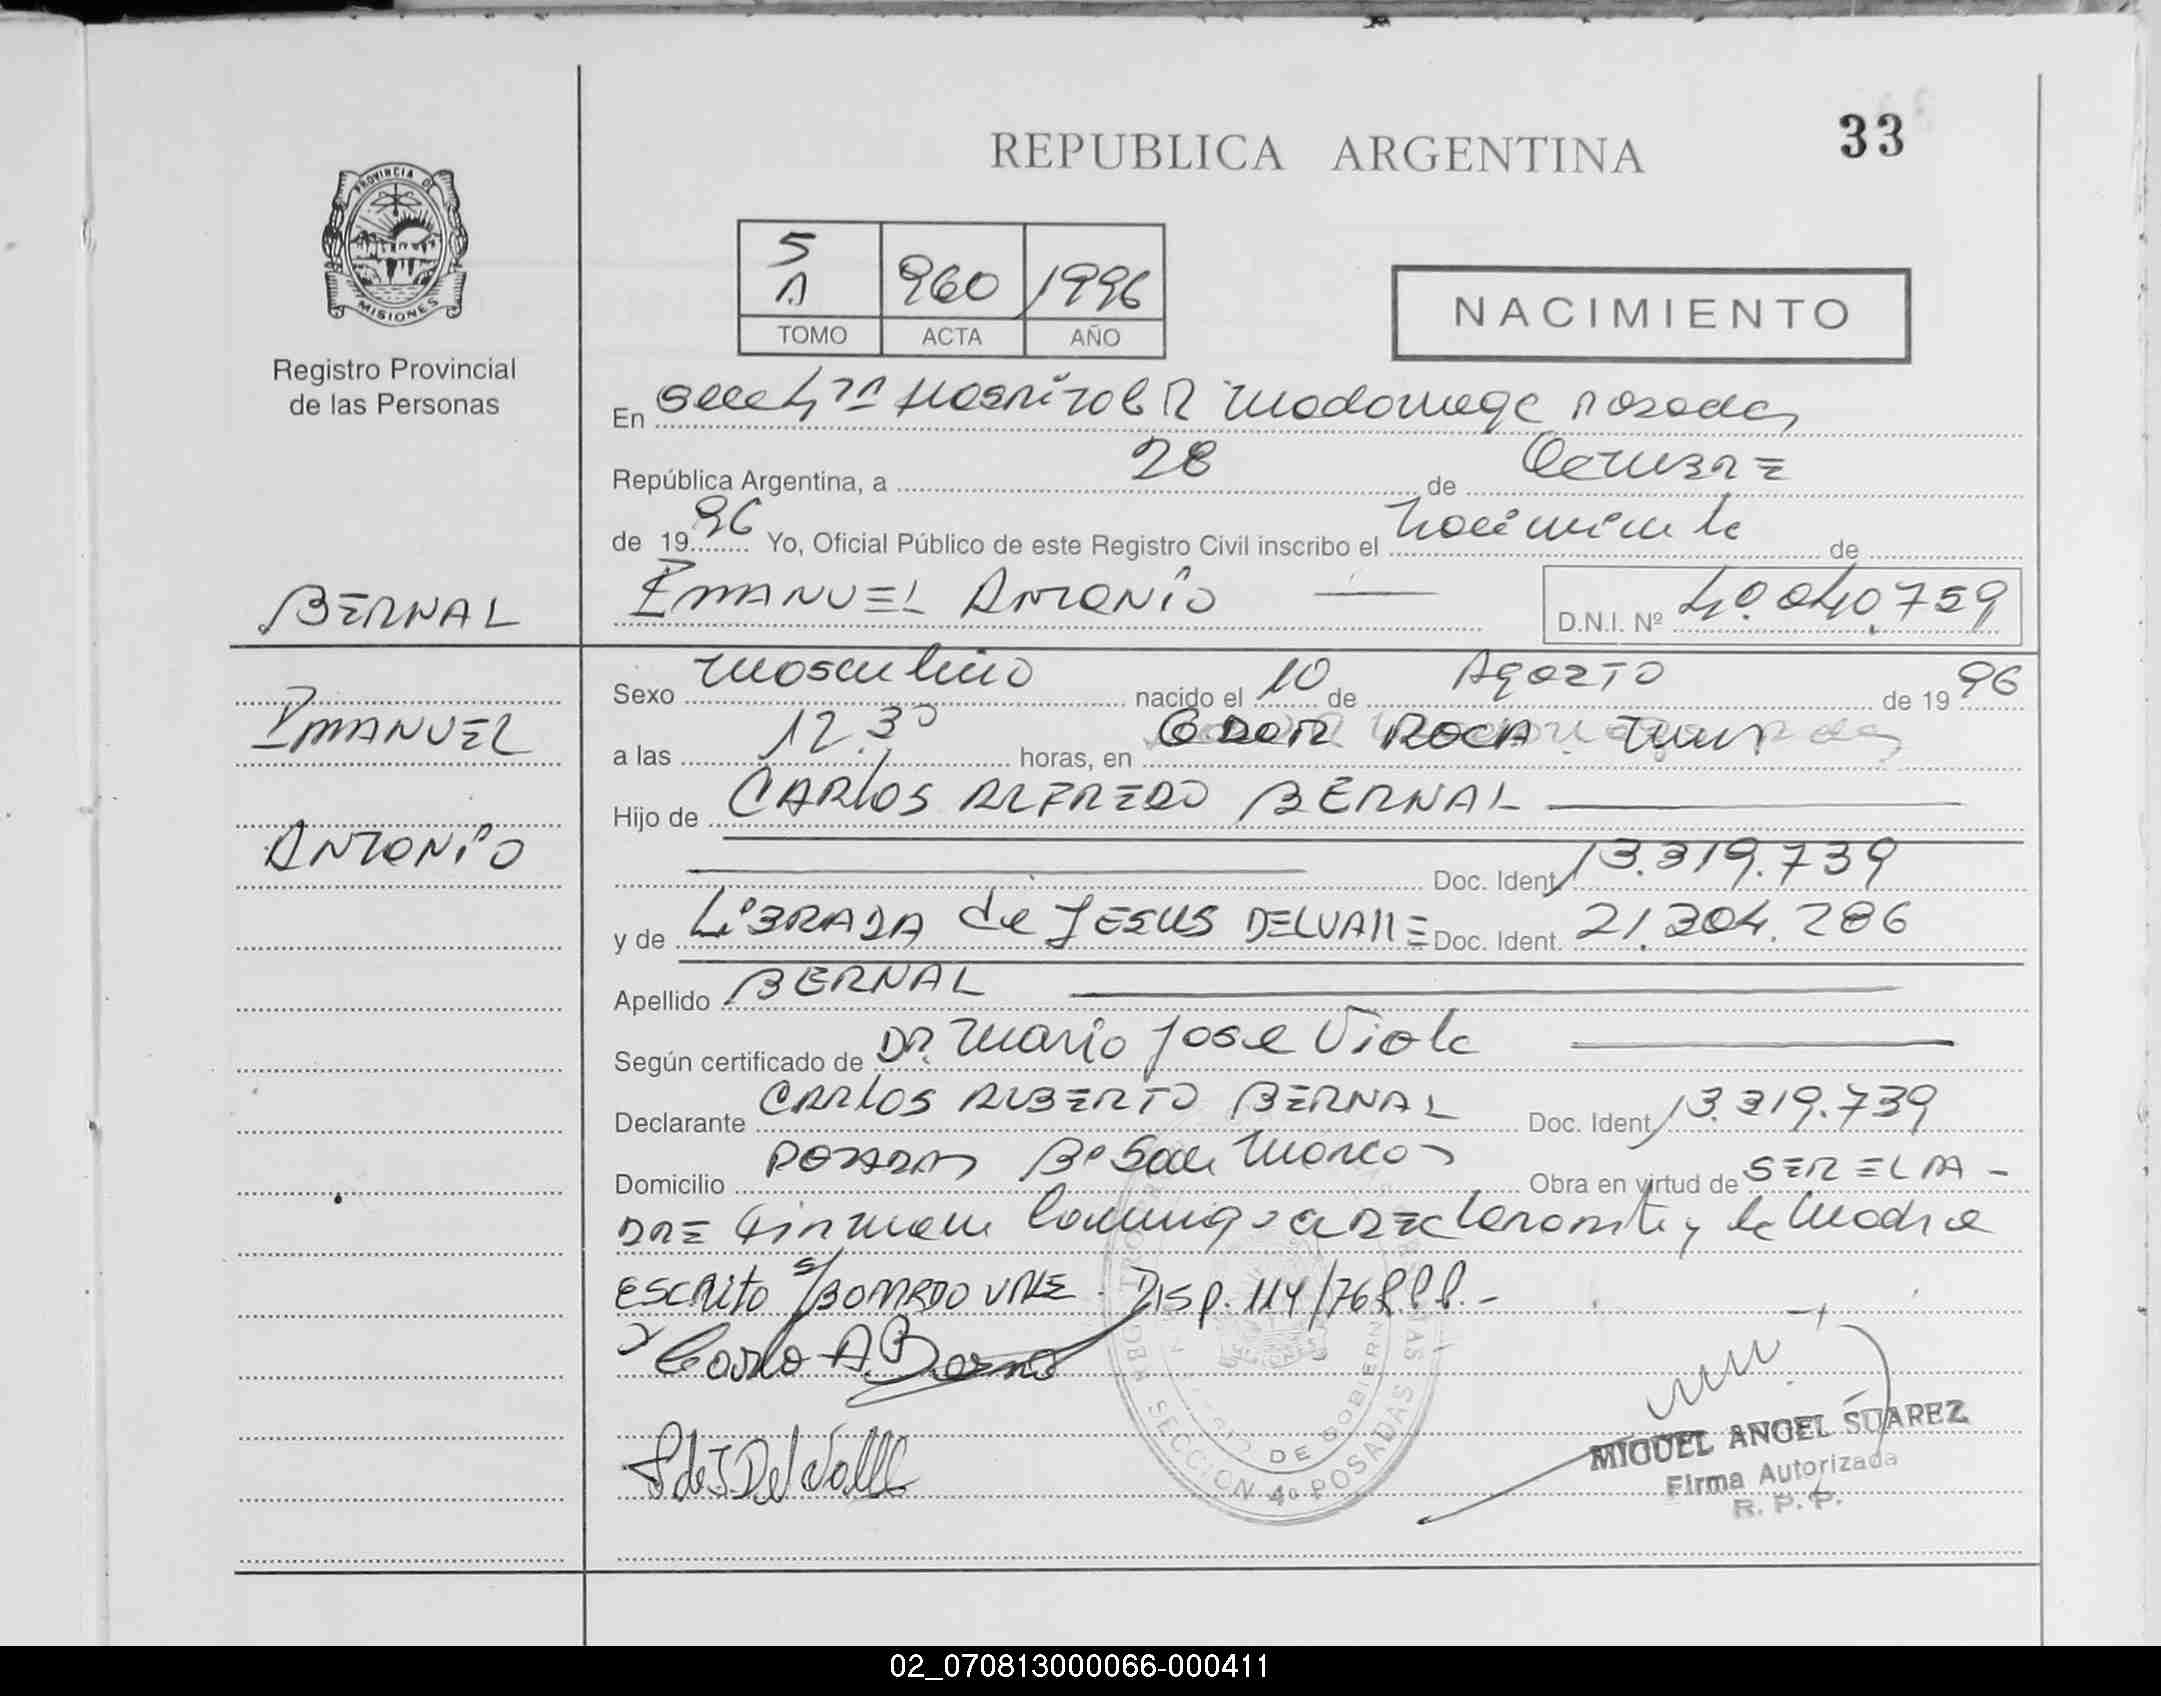 REPUBLICA ARGENTINA
33
PROVINCIA DE
MISIONES
Registro Provincial
de las Personas
5
A
960
1996
TOMO
ACTA
AÑO
NACIMIENTO
En Hospital R Madariaga Posadas
República Argentina, a 28 de Octubre
de 1996 Yo, Oficial Público de este Registro Civil inscribo el nacimiento de
EMANUEL ANTONIO
D.N.I. Nº 40.040.759
BERNAL
EMANUEL
ANTONIO
Sexo masculino nacido el 10 de Agosto de 1996
a las 12.30 horas, en ROCA
Hijo de CARLOS ALFREDO BERNAL
Doc. Ident. 13.319.739
y de LIBRADA de JESUS DELVALLE Doc. Ident. 21.304.286
Apellido BERNAL
Según certificado de DR. Mario Jose Viola
Declarante CARLOS ALBERTO BERNAL Doc. Ident. 13.319.739
Domicilio POSADAS Bº San Marcos Obra en virtud de SER EL PA-
DRE Firman conmigo declarante y la Madre
ESCRITO s/BORRADO VALE. Disp. 114/76
Carlo A. Bernal
L de J Del Valle
SECCION 4º POSADAS
DE GOBIERNO
MIGUEL ANGEL SUAREZ
Firma Autorizada
R. P. P.
02_070813000066-000411